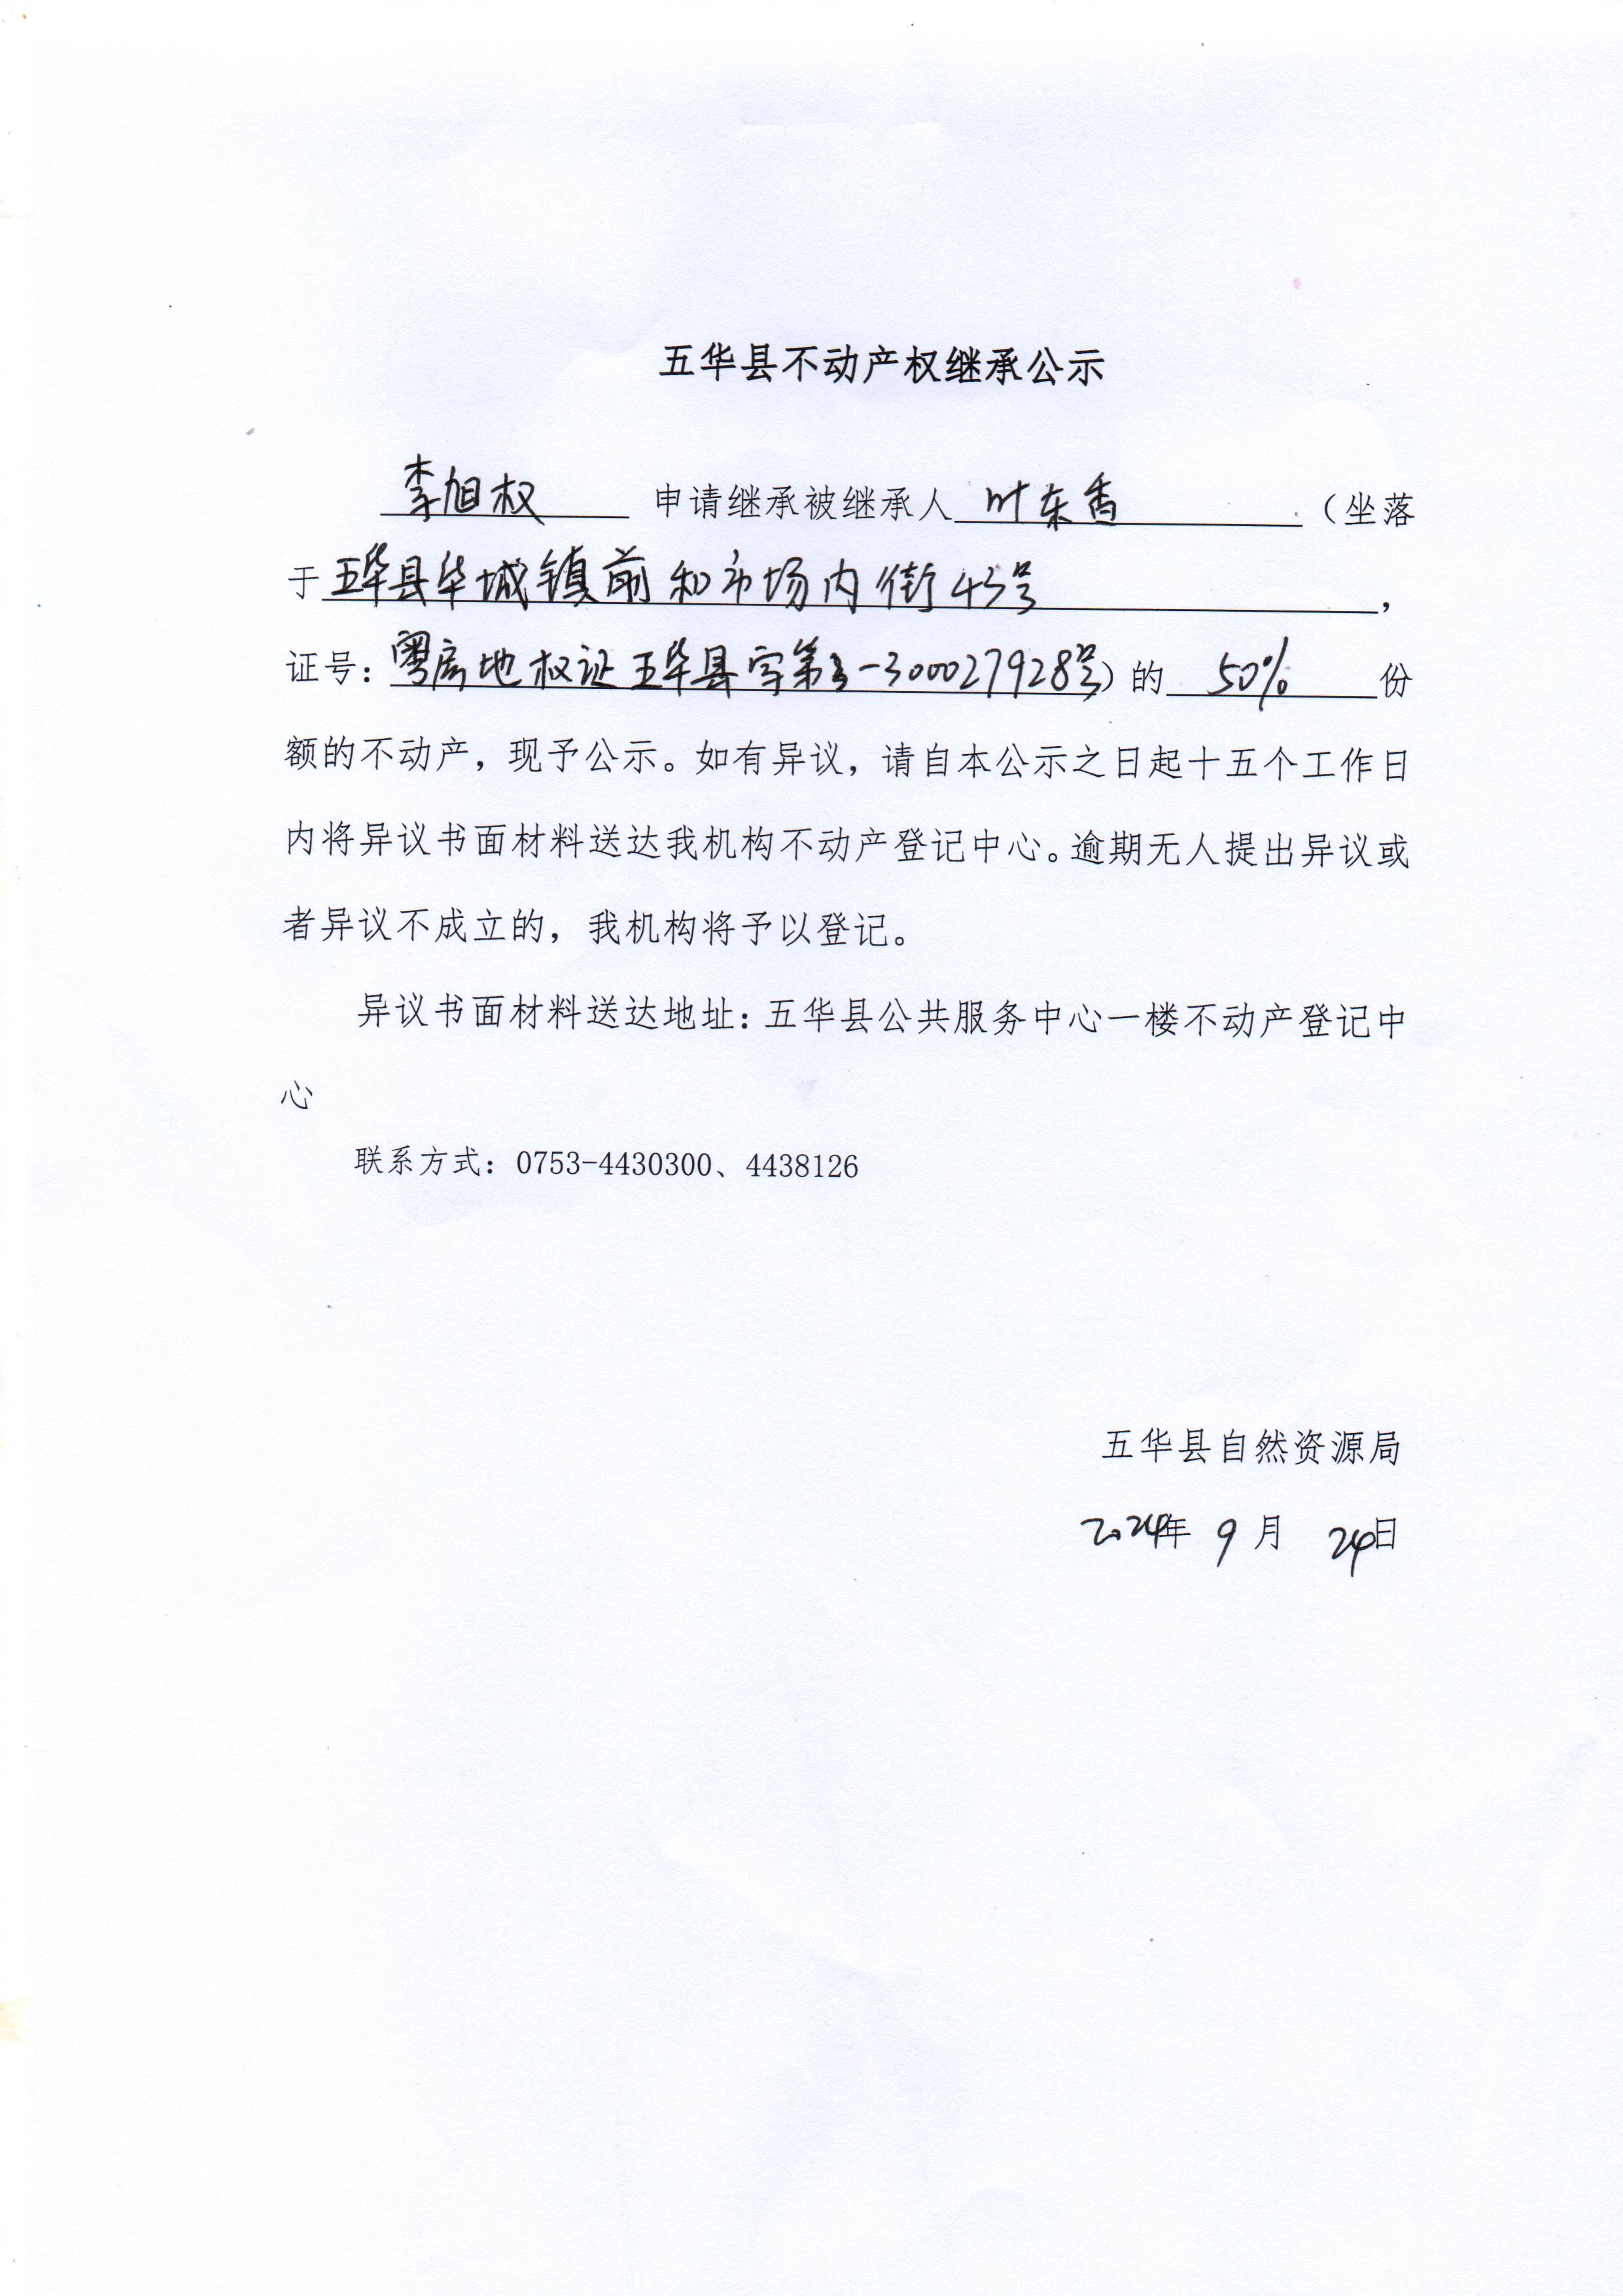 五华县不动产权继承公示
李旭权 申请继承被继承人 叶东香 （坐落
于五华县华城镇前和市场内街43号，
证号：粤房地权证五华县字第3-300027928号）的 50% 份
额的不动产，现予公示。如有异议，请自本公示之日起十五个工作日
内将异议书面材料送达我机构不动产登记中心。逾期无人提出异议或
者异议不成立的，我机构将予以登记。
异议书面材料送达地址：五华县公共服务中心一楼不动产登记中
心
联系方式：0753-4430300、4438126
五华县自然资源局
2024年 9 月 24日